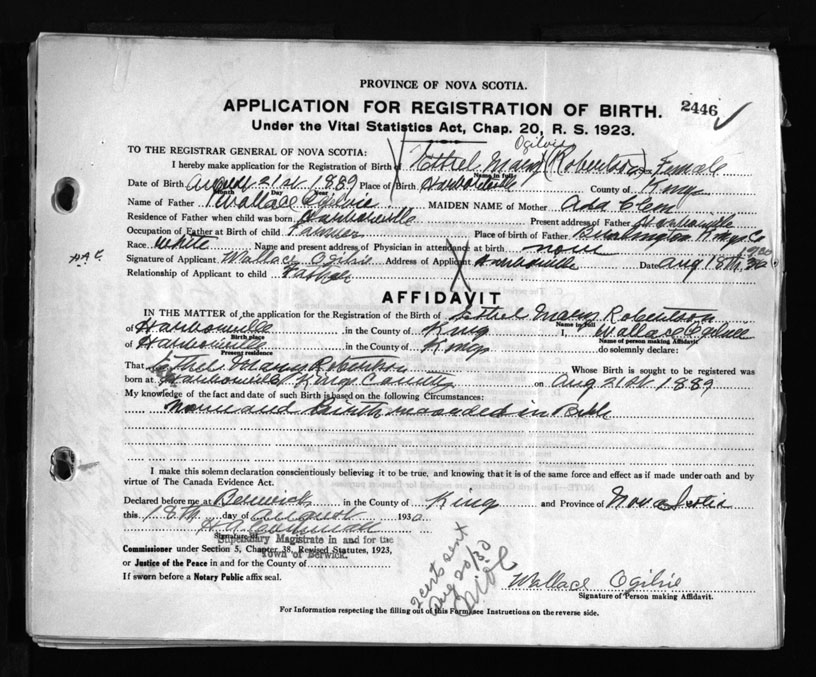 PROVINCE OF NOVA SCOTIA.
APPLICATION FOR REGISTRATION OF BIRTH. 2446
Under the Vital Statistics Act, Chap. 20, R. S. 1923.
Ogilvie
TO THE REGISTRAR GENERAL OF NOVA SCOTIA:
I hereby make application for the Registration of Birth of Ethel Mary (Robertson) Female
Name in full
Date of Birth August 21st 1889 Place of Birth Harborville County of Kings
Month Day Year
Name of Father Wallace Ogilvie MAIDEN NAME of Mother Ada Clem
Residence of Father when child was born Harborville Present address of Father Harborville
Occupation of Father at Birth of child Farmer Place of birth of Father Burlington Kings Co
Race white Name and present address of Physician in attendance at birth none
Signature of Applicant Wallace Ogilvie Address of Applicant Harborville Date Aug 18th 1930
Relationship of Applicant to child Father
AFFIDAVIT
IN THE MATTER of, the application for the Registration of the Birth of Ethel Mary Robertson
Name in full
of Harborville in the County of Kings I, Wallace Ogilvie
Birth place Name of person making Affidavit
of Harborville in the County of Kings do solemnly declare:
Present residence
That Ethel Mary Robertson Whose Birth is sought to be registered was
born at Harborville Kings County on Aug 21st 1889
My knowledge of the fact and date of such Birth is based on the following Circumstances:
Name and Birth recorded in Bible
I make this solemn declaration conscientiously believing it to be true, and knowing that it is of the same force and effect as if made under oath and by
virtue of The Canada Evidence Act.
Declared before me at Berwick in the County of Kings and Province of Nova Scotia
this 18th day of August 1930
Signature
Stipendiary Magistrate in and for the
Town of Berwick.
Commissioner under Section 5, Chapter 38, Revised Statutes, 1923,
or Justice of the Peace in and for the County of
If sworn before a Notary Public affix seal.
Cert sent
Aug 20/30
Wallace Ogilvie
Signature of Person making Affidavit.
For Information respecting the filling out of this Form, see Instructions on the reverse side.